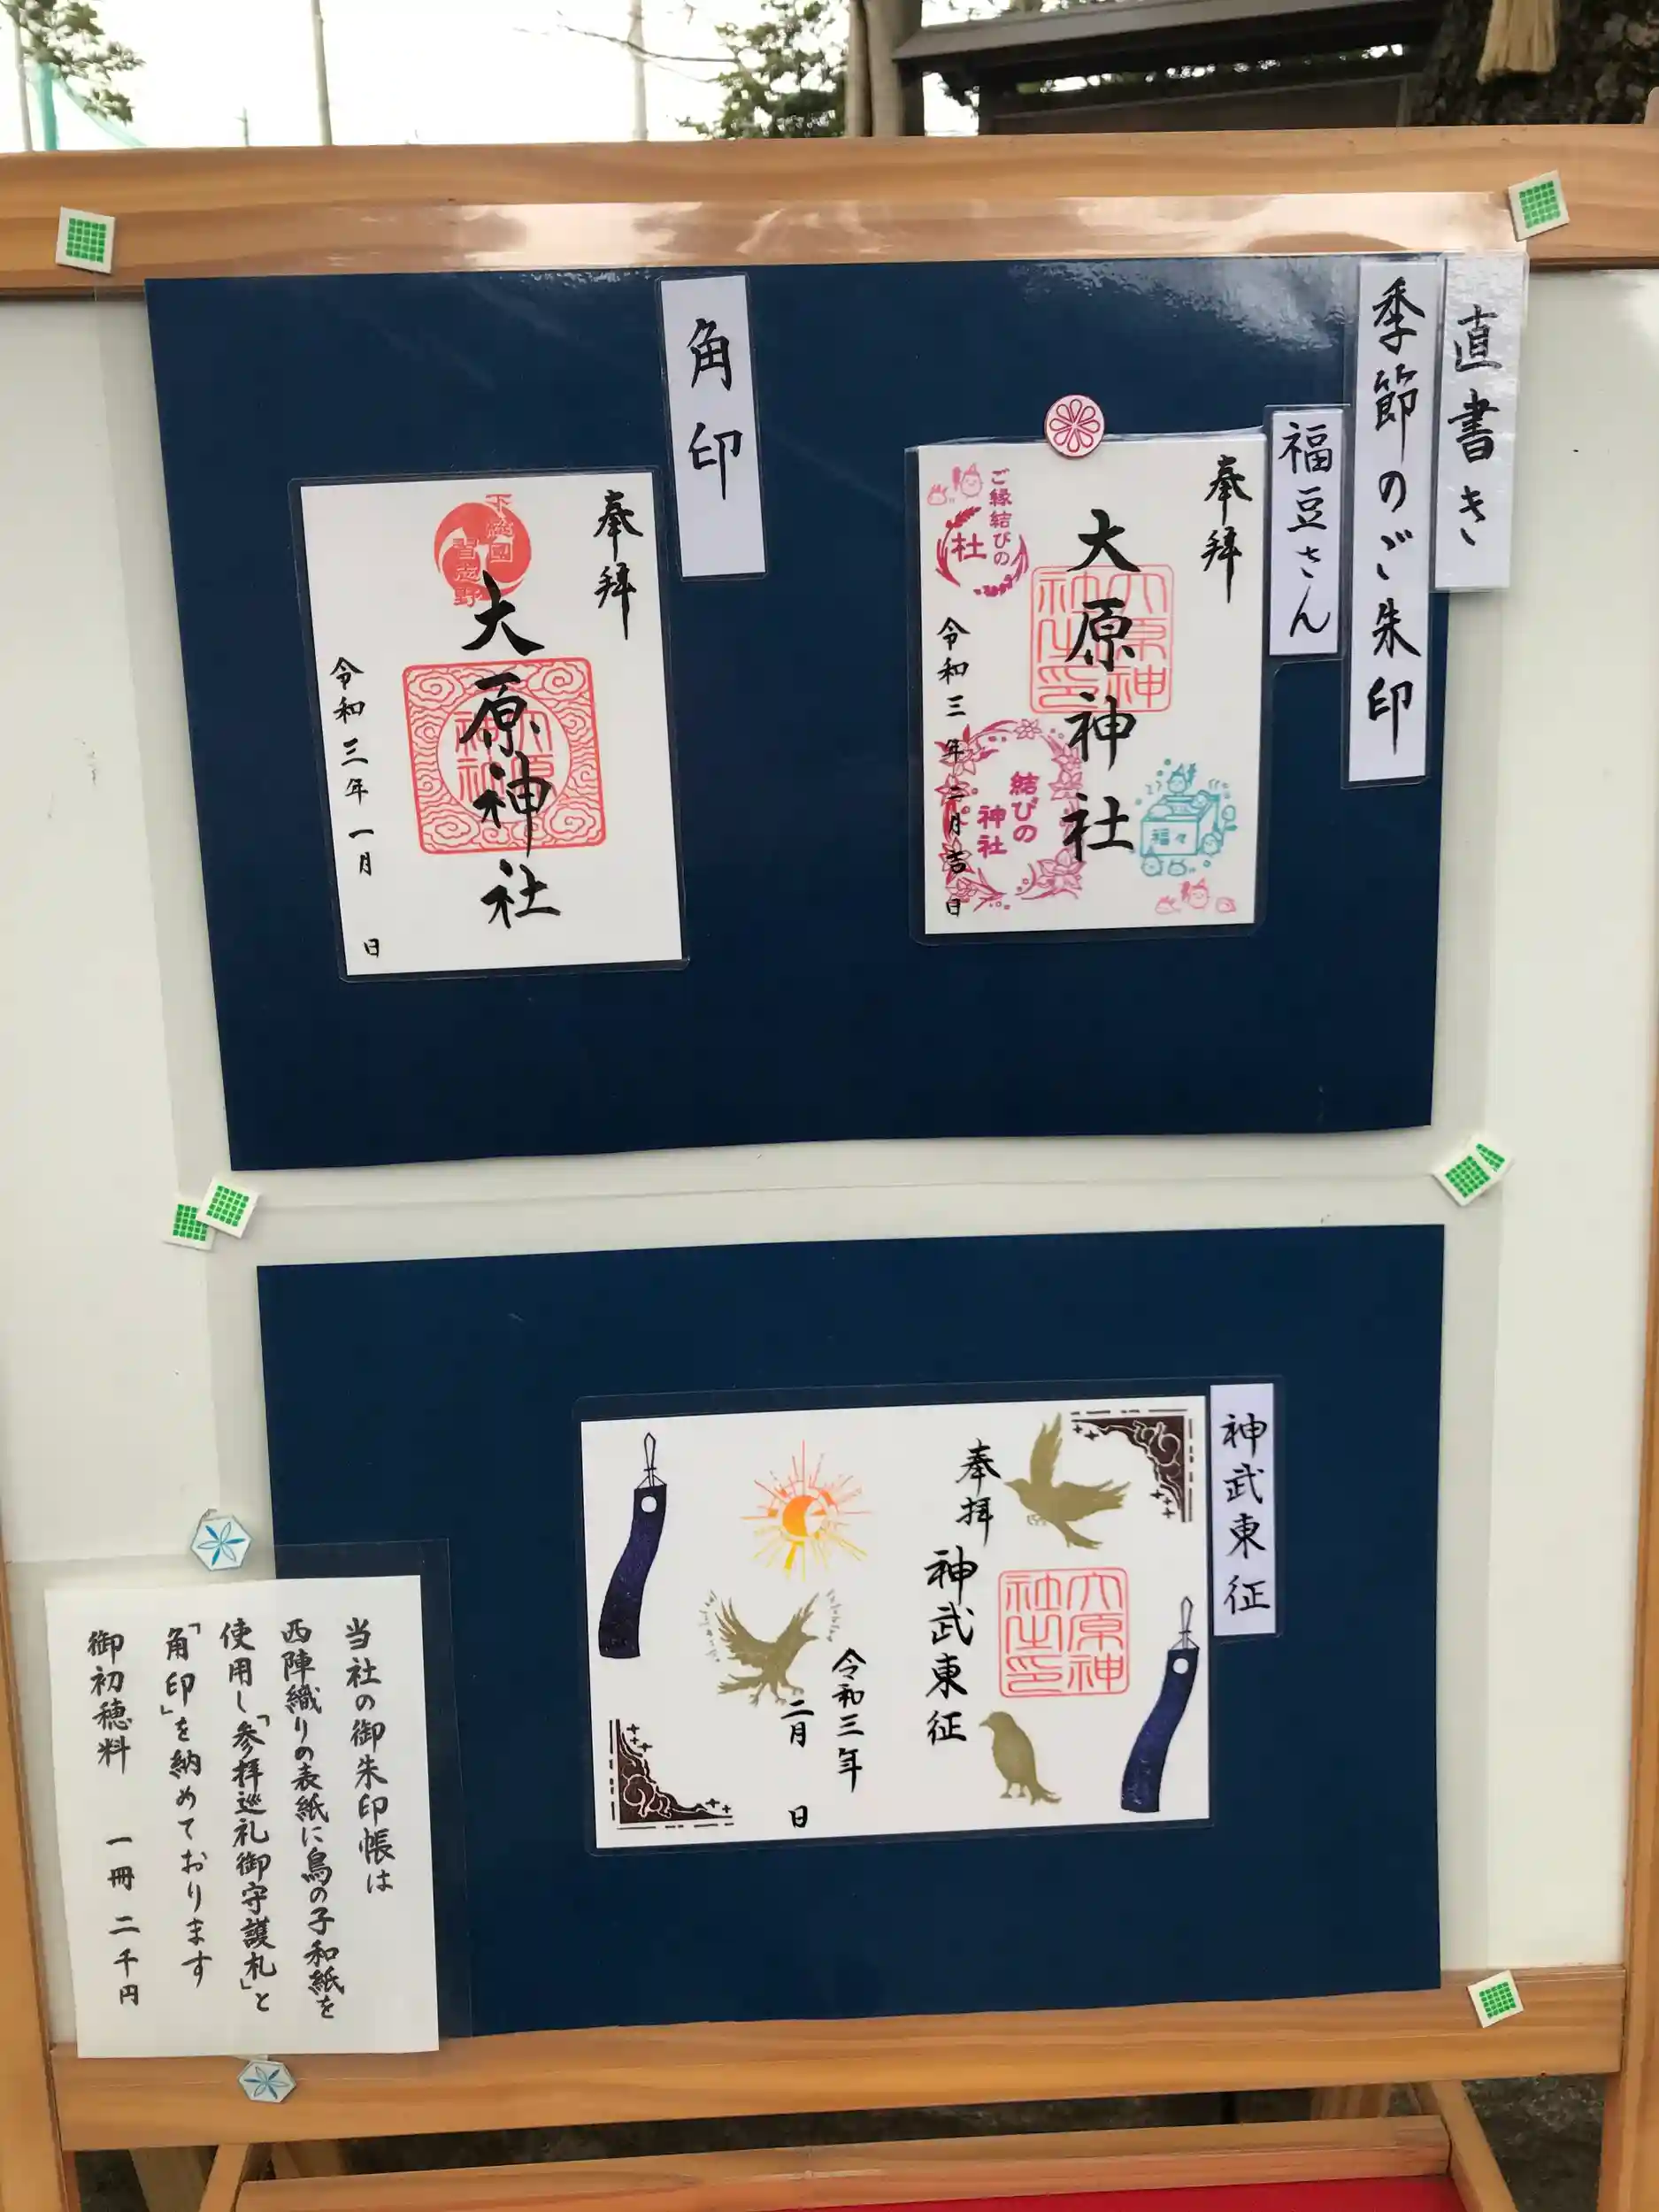 直書き
季節のご朱印
福豆さん
奉拝
大原神社
大原神社之印
ご縁結びの
杜
令和三年二月吉日
結びの
神社
福々
角印
奉拝
下総國
習志野
大原神社
大原
神社
令和三年一月 日
神武東征
奉拝
神武東征
大原神
社之印
令和三年
二月 日
当社の御朱印帳は
西陣織りの表紙に鳥の子和紙を
使用し「参拝巡礼御守護札」と
「角印」を納めております
御初穂料 一冊 二千円